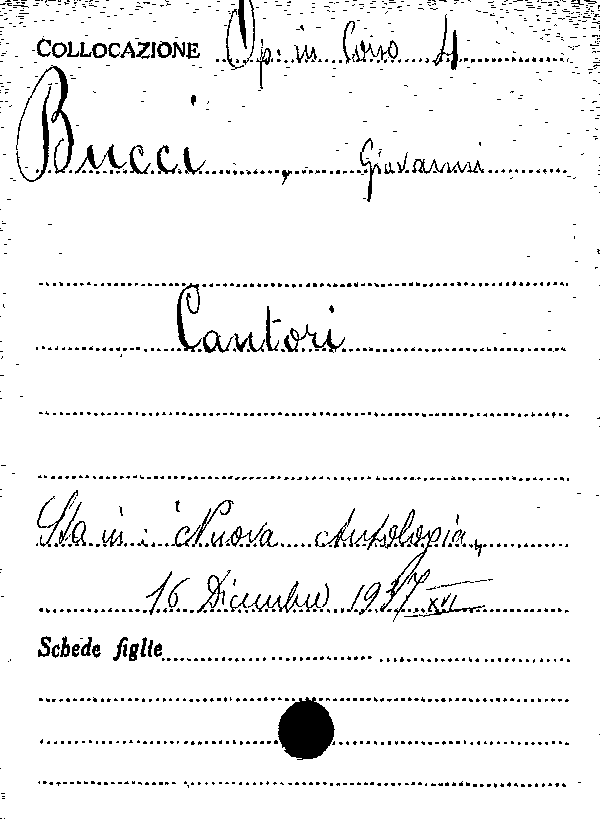 COLLOCAZIONE Op. in Corso 4
Bucci, Giovanni
Cantori
Sta in: "Nuova Antologia,
16 Dicembre 1937 XVI
Schede figlie